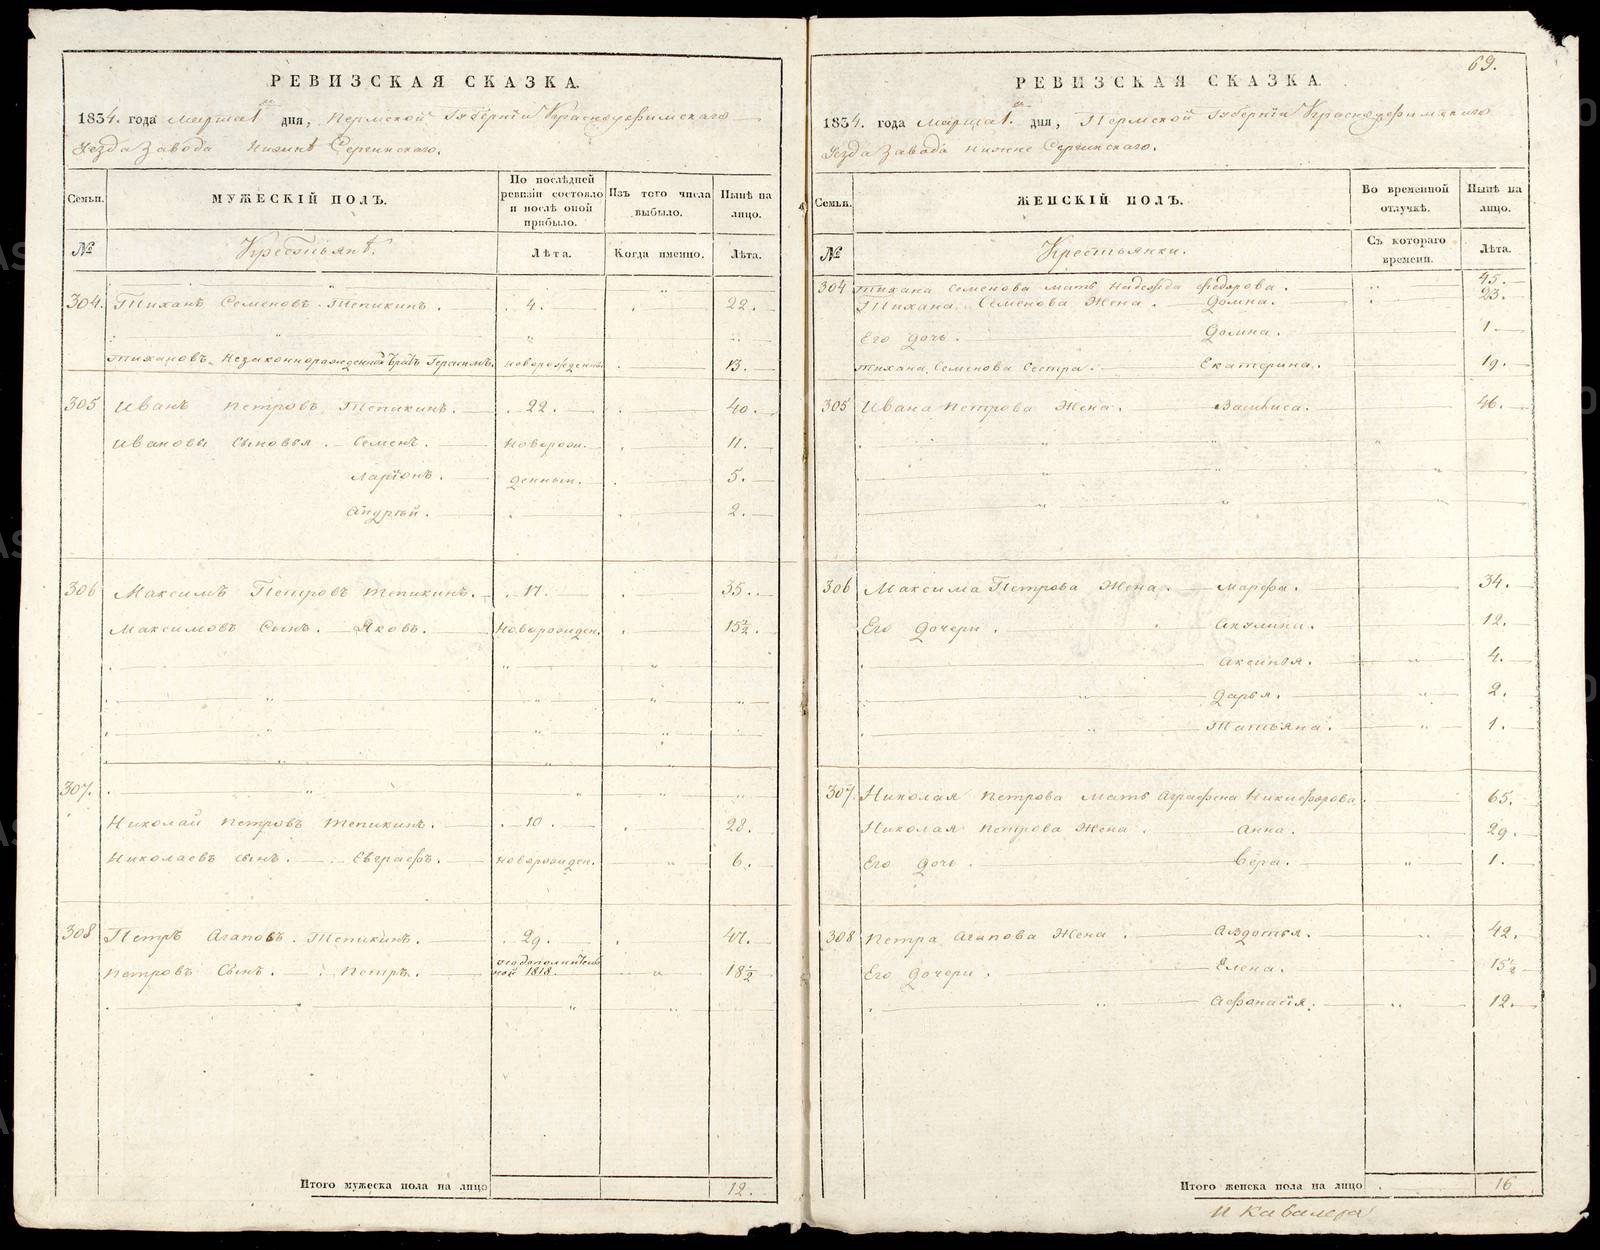 РЕВИЗСКАЯ СКАЗКА.
1834. года Марта 1 дня, Пермской Губерніи Красноуфимскаго
Уезда Завода Нижне Сергинскаго.
Семьи.
МУЖЕСКІЙ ПОЛЪ.
По послѣдней ревизіи состояло и послѣ оной прибыло.
Изъ того числа выбыло.
Нынѣ на лицо.
№
Крестьянѣ.
Лѣта.
Когда именно.
Лѣта.
304. Тиханъ Семеновъ Тепикинъ. 4. 22.
Тихановъ Незаконнорожденной братъ Герасимъ. новорожденный 13.
305 Иванъ Петровъ Тепикинъ. 22. 40.
Ивановы Сыновья. Семенъ. Новорож- 11.
Ларіонъ. денныи. 5.
Андрѣй. 2.
306 Максимъ Петровъ Тепикинъ. 17. 35.
Максимовъ Сынъ. Яковъ. Новорожден. 15½.
307.
Николай Петровъ Тепикинъ. 10. 28.
Николаевъ сынъ. Евграфъ. новорожден. 6.
308 Петръ Агаповъ. Тепикинъ. 29. 47.
Петровъ Сынъ. Петръ. 1818. 18½
Итого мужеска пола на лицо 12.
69.
РЕВИЗСКАЯ СКАЗКА.
1834. года Марта 1. дня, Пермской Губерніи Красноуфимскаго
Уезда Завода Нижне Сергинскаго.
Семьи.
ЖЕНСКІЙ ПОЛЪ.
Во временной отлучкѣ.
Нынѣ на лицо.
№
Крестьянки.
Съ котораго времени.
Лѣта.
304 Тихана Семенова мать Надежда Федорова. 45.
Тихана Семенова Жена. Домна. 23.
Его дочь. Домна. 1.
Тихана Семенова Сестра. Екатерина. 19.
305 Ивана Петрова Жена. Васылиса. 46.
306 Максима Петрова Жена. Марфа. 34.
Его дочери. Акулина. 12.
Аксинья. 4.
Дарья. 2.
Татьяна. 1.
307. Николая Петрова Мать Аграфена Никифорова. 65.
Николая Петрова Жена. Анна. 29.
Его дочь. Вера. 1.
308 Петра Агапова Жена. Авдотья. 42.
Его дочери. Елена. 15½
Афонасія. 12.
Итого женска пола на лицо 16
и Кавалера